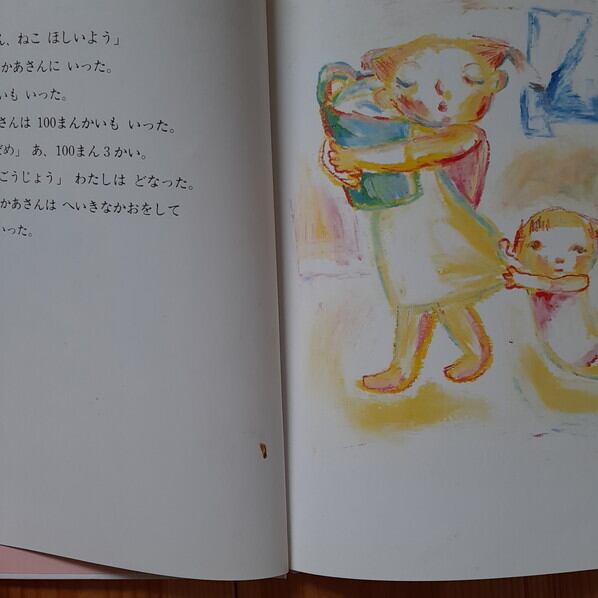 ん、ねこ ほしいよう」
かあさんに いった。
いも いった。
さんは 100まんかいも いった。
だめ」 あ、100まん3かい。
ごうじょう」 わたしは どなった。
かあさんは へいきなかおをして
いった。